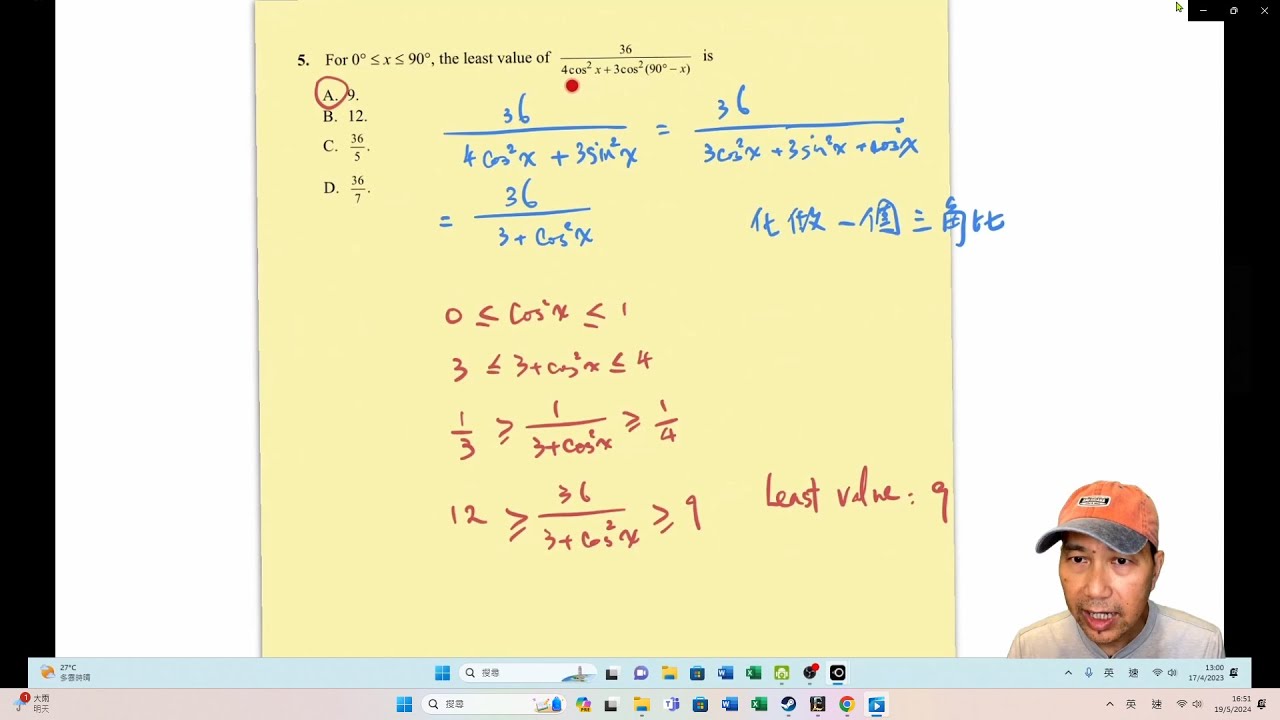 5. For 0° ≤ x ≤ 90°, the least value of 36/(4cos² x + 3cos² (90° − x)) is
A. 9.
B. 12.
C. 36/5.
D. 36/7.
36/(4cos²x + 3sin²x) = 36/(3cos²x + 3sin²x + cos²x)
= 36/(3 + cos²x)
化做一個三角比
0 ≤ cos²x ≤ 1
3 ≤ 3+cos²x ≤ 4
1/3 ≥ 1/(3+cos²x) ≥ 1/4
12 ≥ 36/(3+cos²x) ≥ 9
Least value: 9
27°C
多喜時晴
搜尋
英 速
13:00
17/4/2023
1
大雨
明天
搜尋
英 速
16:51
19/5/2024